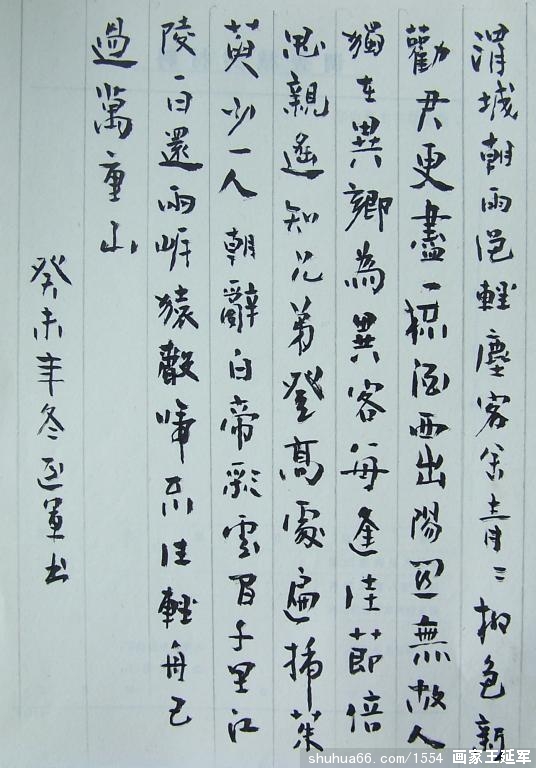 渭城朝雨浥輕塵客舍青=柳色新
勸君更盡一杯酒西出陽關無故人
獨在異鄉為異客每逢佳節倍
思親遙知兄弟登高處遍插茱
萸少一人朝辭白帝彩雲間千里江
陵一日還兩岸猿聲啼不住輕舟已
過萬重山
癸未年冬延軍书
shuhua66.com/1554 画家王延军